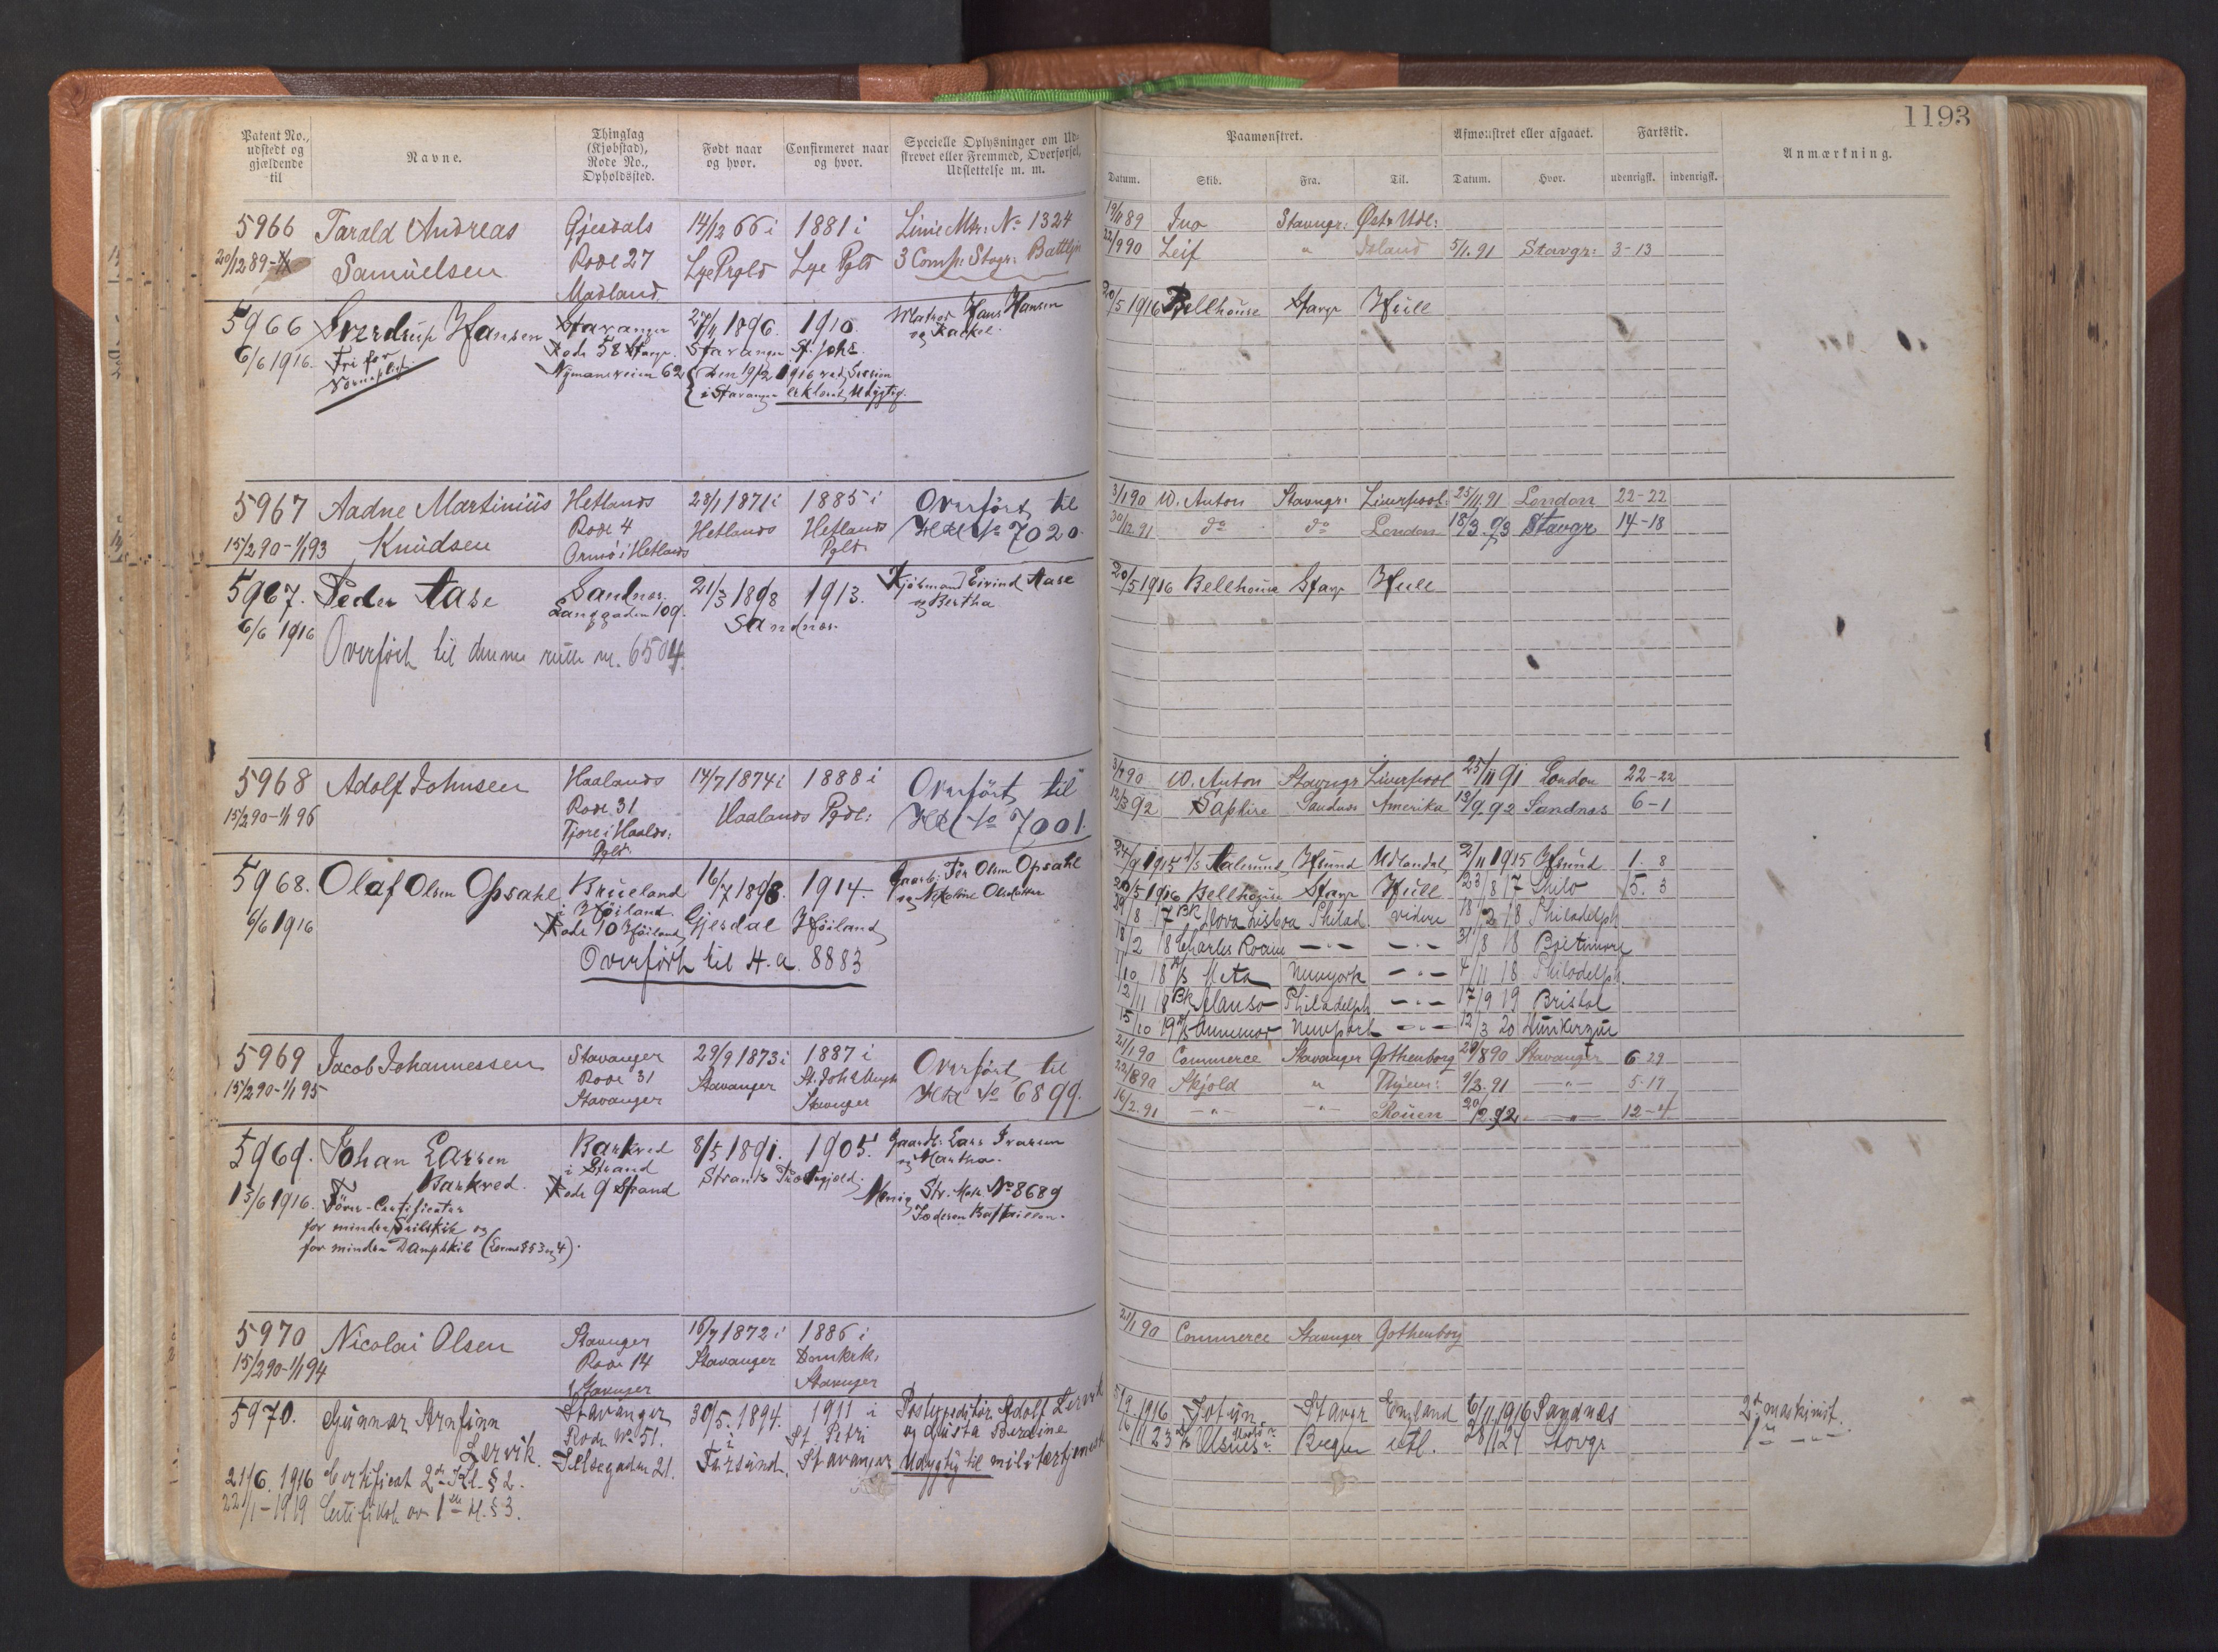 1193
Patent No., udstedt og gjældende til
Navne.
Thinglag (Kjøbstad), Rode No., Opholdssted.
Født naar og hvor.
Confirmeret naar og hvor.
Specielle Oplysninger om Udskrevet eller Fremmed, Overførsel, Udslettelse m. m.
Paamønstret.
Datum. Skib. Fra. Til.
Afmønstret eller afgaaet.
Datum. Hvor.
Fartstid.
udenrigsk. indenrigsk.
Anmærkning.
5966 Tarald Andreas Gjesdals 14/12 66 i 1881 i Linie Mtr: No 1324
20/12 89 Samuelsen Rode 27 Lye Prgld Lye Pgld 3 Comp: Stvgr: Battljn
Madland
19/11 89 Ino Stavngr: Østr Udl:
22/9 90 Leif " Island 5/1. 91 Stavgr: 3-13
5966 Sverdrup Hansen Stavanger 27/11 1896. 1910. Matros Hans Hansen
6/6 1916. Fri for Rode 58 Stavgr. Stavanger St. Johs. og Rachel.
Værnepligt Nymansveien 62 Den 19/2 1916 ved Session
i Stavanger erklæret Udygtig.
20/5 1916 Bellhouse Stavgr Hull
5967 Aadne Martinius Hetlands 28/1 1871 i 1885 i Overført til
15/2 90 - 1/1 93 Knudsen Rode 4 Hetlands Hetlands Hxl No 7020.
Ormø i Hetlands Pgld.
3/1 90 W. Anton Stavngr: Liverpool: 25/11. 91 London 22-22
30/12 91 do do London 18/3. 93 Stavgr 14-18
5967. Peder Aase Sandnes. 21/3 1898 1913. Kjøbmand Eivind Aase
6/6 1916 Langgaden 109. Sandnes. og Bertha
Overført til denne rulle nr. 6504.
20/5 1916 Bellhouse Stavgr Hull
5968 Adolf Johnsen Haalands 14/7 1874 i 1888 i Overført til
15/2 90 - 1/1 96 Rode 31 Haalands Pgdl: Hxl No 7001.
Tjore i Haalds:
Pgld.
3/1 90 W. Anton Stavngr Liverpool 25/11 91 London 22-22
12/3 92 Saphire Sandnes Amerika 13/9. 92 Sandnes 6-1
5968. Olaf Olsen Opsahl Brueland 16/7 1898. 1914. Gaardb. Per Olsen Opsahl
6/6 1916 i Høiland. Gjesdal Høiland og Nikoline Olsdatter
Rode 10 Høiland
Overført til H. a. 8883
24/9 1915 Hsund Udlandet 2/11 1915 Hsund 1. 8
20/5 1916 Bellhouse Stavgr Hull 23/8 17 Philo 15. 3
29/8 17 Bk Nova Lisboa Philad. videre 18/2 18 Philadelph
18/2 18 Charles 31/8 18 Baltimore
1/10 18 Meta Newyork 4/11 18 Philadelph
12/11 18 Bk Philadelph 17/9 19 Bristol
15/10 19 Newport 12/3 20 Dunkerque
5969 Jacob Johannessen Stavanger 29/9 1873 i 1887 i Overført til
15/2 90 - 1/1 95 Rode 31 Stavanger St. Joh's Mngh Hxl No 6899.
Stavanger Stavanger
21/1 90 Commerce Stavanger Gothenborg 20/8 90 Stavanger 6-29
22/8 90 Skjold " 9/2. 91 5-17
16/2. 91 Rouen 20/2. 92 12-4
5969. Johan Larsen Barkved 8/5 1891. 1905. Gaardb: Lars Ivarsen
Barkved. i Strand Strands og Martha.
13/6 1916. Förer-Certificater Rode 9 Strand Menig Str. Mtr. No 8689
for mindre Seilskib og Jæderen Bataillon.
for mindre Dampskib (Loven §§ 3 og 4).
5970 Nicolai Olsen Stavanger 16/7 1872 i 1886 i
15/2 90 - 1/1 94 Rode 14 Stavanger Domkrk.
Stavanger Stavanger
21/1 90 Commerce Stavanger Gothenborg
5970. Gunnar Arnfinn Stavanger 30/5. 1894. 1911 i Postexpeditør Adolf Lervik
Lervik. Rode No 51. i St. Petri og Gusta Berdine
Jelsegaden 21. Farsund. Stavanger Udygtig til militærtjeneste
21/6. 1916 Certificat 2den Kl. § 2.
22/1 - 1919 Certifikat av 1ste kl. § 3.
5/9 1916 Jotun. Stavgr England 6/11. 1916 Sandnes 2den maskinist.
16/11 23 Bergen utl. 28/1 24 Stavgr 1ste